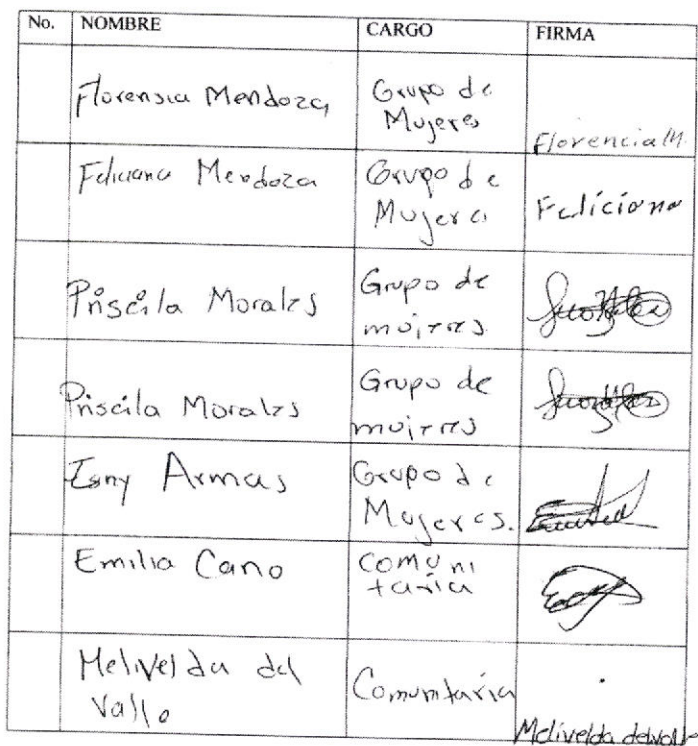 No. NOMBRE CARGO FIRMA
Florensia Mendoza Grupo de
Mujeres Florencia M.
Feliciana Mendoza Grupo de
Mujeres Feliciana
Priscila Morales Grupo de
mujeres
Priscila Morales Grupo de
mujeres
Isny Armas Grupo de
Mujeres.
Emilia Cano Comuni
taria
Melivelda del
Valle Comunitaria
Melivelda delvalle